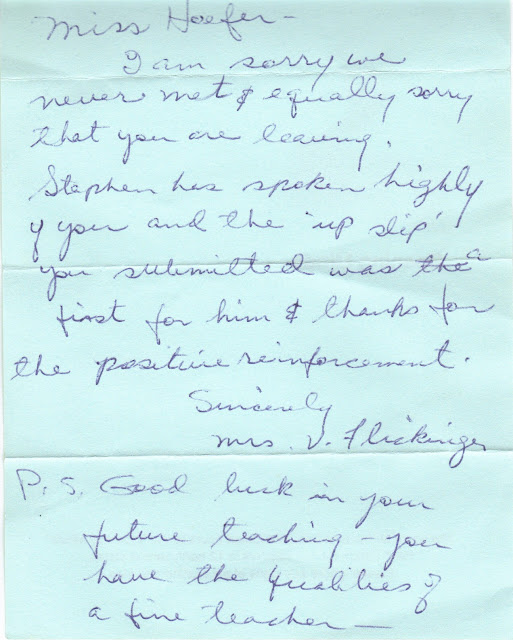 Miss Hoefer -
I am sorry we
never met & equally sorry
that you are leaving.
Stephen has spoken highly
of you and the 'up slip'
you submitted was the a
first for him & thanks for
the positive reinforcement.
Sincerely
Mrs. V. Flickinger
P.S. Good luck in your
future teaching - you
have the qualities of
a fine teacher -